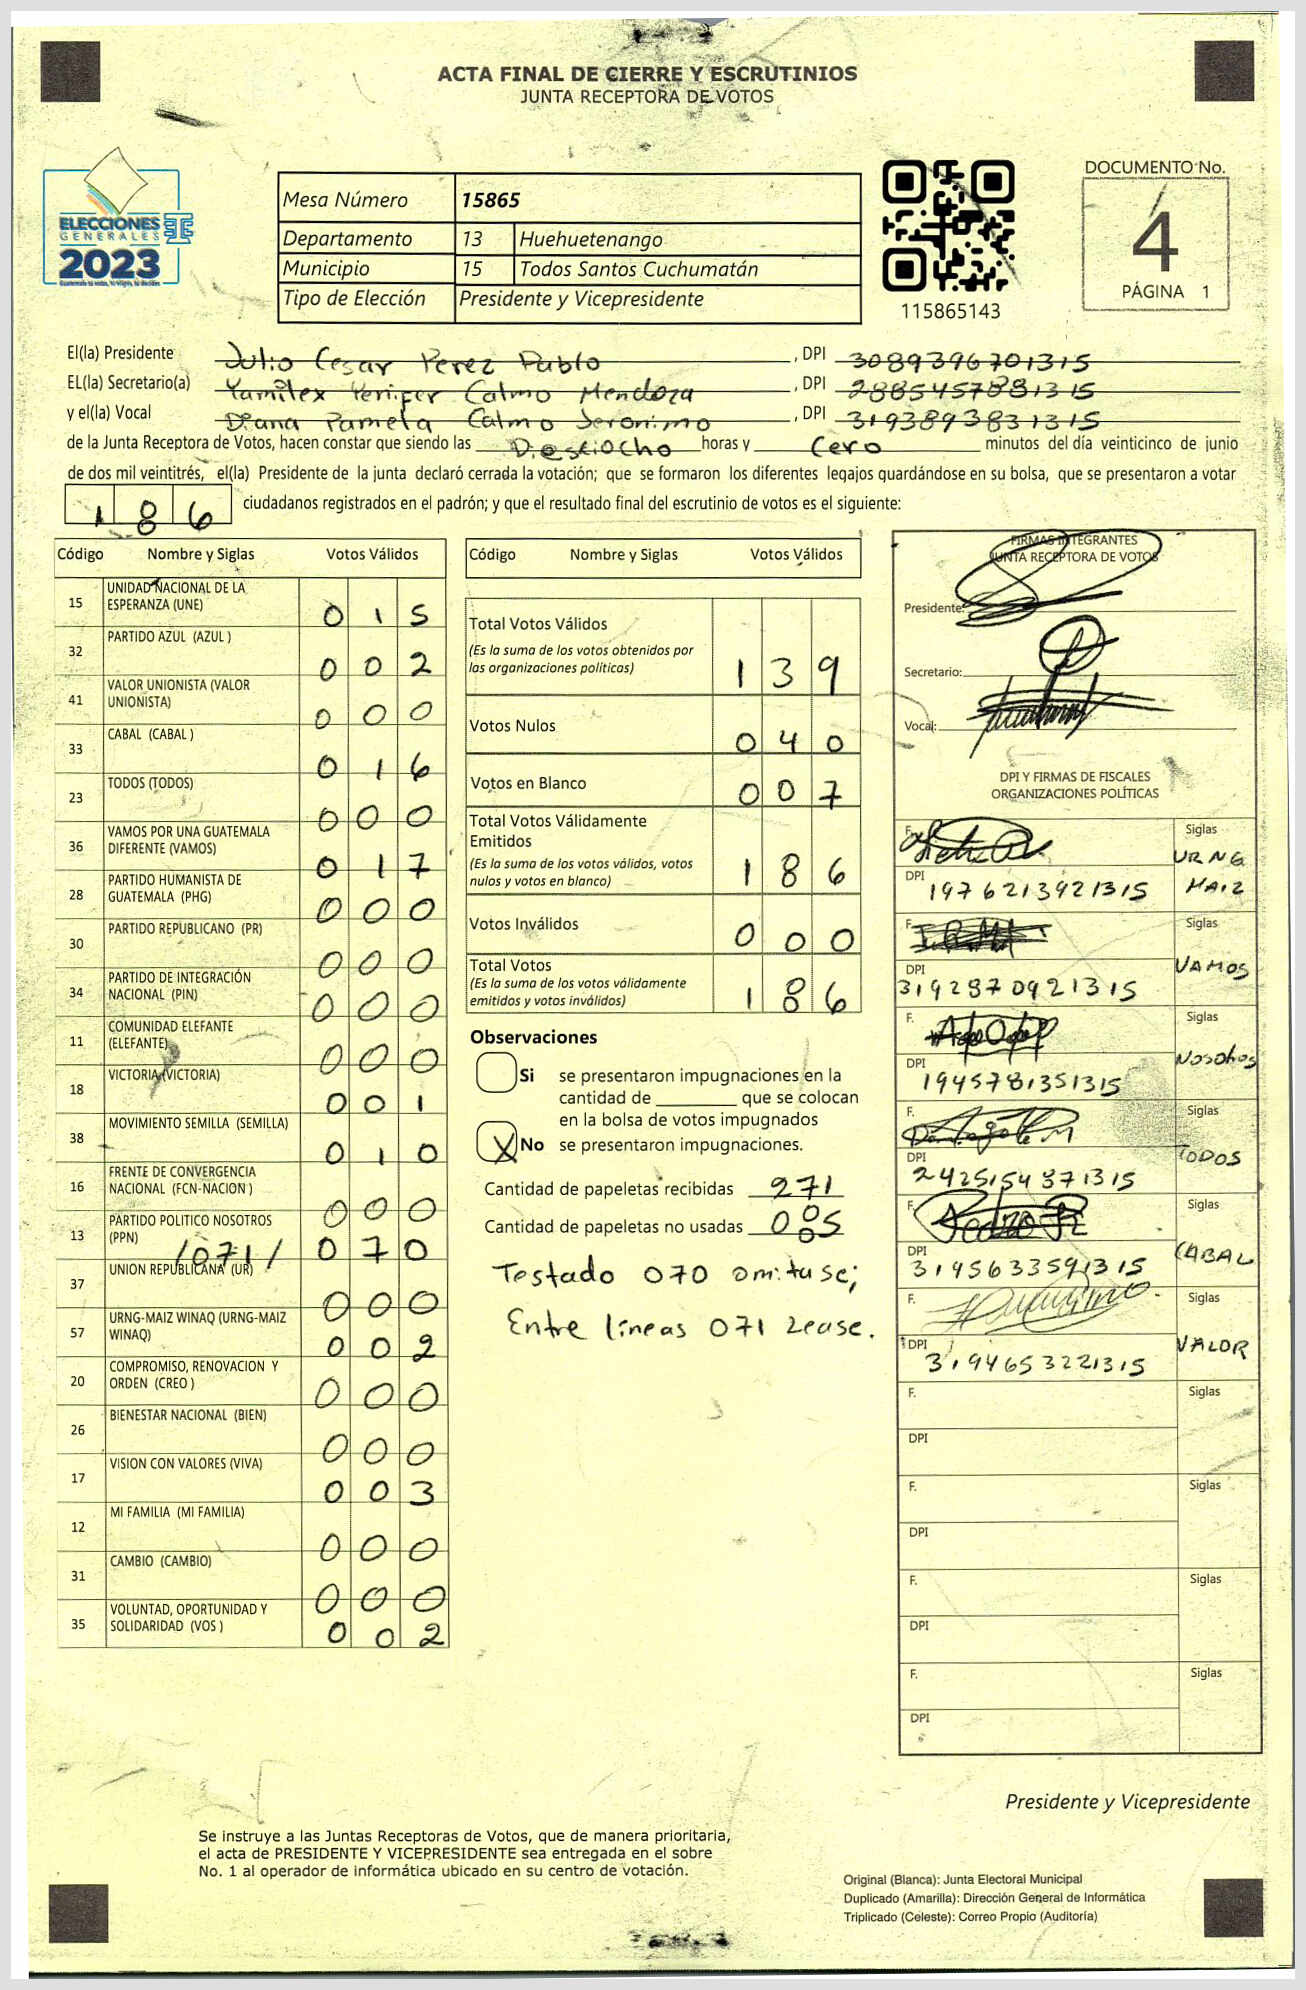 ACTA FINAL DE CIERRE Y ESCRUTINIOS
JUNTA RECEPTORA DE VOTOS
DOCUMENTO No.
4
PÁGINA 1
ELECCIONES
GENERALES
2023
Mesa Número 15865
Departamento 13 Huehuetenango
Municipio 15 Todos Santos Cuchumatán
Tipo de Elección Presidente y Vicepresidente
115865143
El(la) Presidente Julio Cesar Perez Pablo, DPI 3089396701315
EL(la) Secretario(a) Yamilex Yenifer Calmo Mendoza, DPI 2885457881315
y el(la) Vocal Diana Pamela Calmo Jeronimo, DPI 3193893831315
de la Junta Receptora de Votos, hacen constar que siendo las Diesiocho horas y Cero minutos del día veinticinco de junio
de dos mil veintitrés, el(la) Presidente de la junta declaró cerrada la votación; que se formaron los diferentes legajos quardándose en su bolsa, que se presentaron a votar
186 ciudadanos registrados en el padrón; y que el resultado final del escrutinio de votos es el siguiente:
Código Nombre y Siglas Votos Válidos
15 UNIDAD NACIONAL DE LA ESPERANZA (UNE) 015
32 PARTIDO AZUL (AZUL ) 002
41 VALOR UNIONISTA (VALOR UNIONISTA) 000
33 CABAL (CABAL ) 016
23 TODOS (TODOS) 000
36 VAMOS POR UNA GUATEMALA DIFERENTE (VAMOS) 017
28 PARTIDO HUMANISTA DE GUATEMALA (PHG) 000
30 PARTIDO REPUBLICANO (PR) 000
34 PARTIDO DE INTEGRACIÓN NACIONAL (PIN) 000
11 COMUNIDAD ELEFANTE (ELEFANTE) 000
18 VICTORIA (VICTORIA) 001
38 MOVIMIENTO SEMILLA (SEMILLA) 010
16 FRENTE DE CONVERGENCIA NACIONAL (FCN-NACION ) 000
13 PARTIDO POLITICO NOSOTROS (PPN) /071/ 070
37 UNION REPUBLICANA (UR) 000
57 URNG-MAIZ WINAQ (URNG-MAIZ WINAQ) 002
20 COMPROMISO, RENOVACION Y ORDEN (CREO ) 000
26 BIENESTAR NACIONAL (BIEN) 000
17 VISION CON VALORES (VIVA) 003
12 MI FAMILIA (MI FAMILIA) 000
31 CAMBIO (CAMBIO) 000
35 VOLUNTAD, OPORTUNIDAD Y SOLIDARIDAD (VOS ) 002
Código Nombre y Siglas Votos Válidos
Total Votos Válidos 139
(Es la suma de los votos obtenidos por
las organizaciones políticas)
Votos Nulos 040
Votos en Blanco 007
Total Votos Válidamente
Emitidos 186
(Es la suma de los votos válidos, votos
nulos y votos en blanco)
Votos Inválidos 000
Total Votos 186
(Es la suma de los votos válidamente
emitidos y votos inválidos)
Observaciones
Si se presentaron impugnaciones en la
cantidad de ________ que se colocan
en la bolsa de votos impugnados
X No se presentaron impugnaciones.
Cantidad de papeletas recibidas 271
Cantidad de papeletas no usadas 085
Testado 070 omitase;
Entre líneas 071 Lease.
FIRMAS INTEGRANTES
JUNTA RECEPTORA DE VOTOS
Presidente:
Secretario:
Vocal:
DPI Y FIRMAS DE FISCALES
ORGANIZACIONES POLÍTICAS
F. Siglas URNG MAIZ
DPI 1976213921315
F. Siglas VAMOS
DPI 3192970921315
F. Siglas Nosotros
DPI 1945781351315
F. Siglas TODOS
DPI 2425154371315
F. Pedro Siglas CABAL
DPI 3195633591315
F. Siglas VALOR
DPI 3194653221315
F. Siglas
DPI
F. Siglas
DPI
F. Siglas
DPI
F. Siglas
DPI
Presidente y Vicepresidente
Se instruye a las Juntas Receptoras de Votos, que de manera prioritaria,
el acta de PRESIDENTE Y VICEPRESIDENTE sea entregada en el sobre
No. 1 al operador de informática ubicado en su centro de votación.
Original (Blanca): Junta Electoral Municipal
Duplicado (Amarilla): Dirección General de Informática
Triplicado (Celeste): Correo Propio (Auditoría)